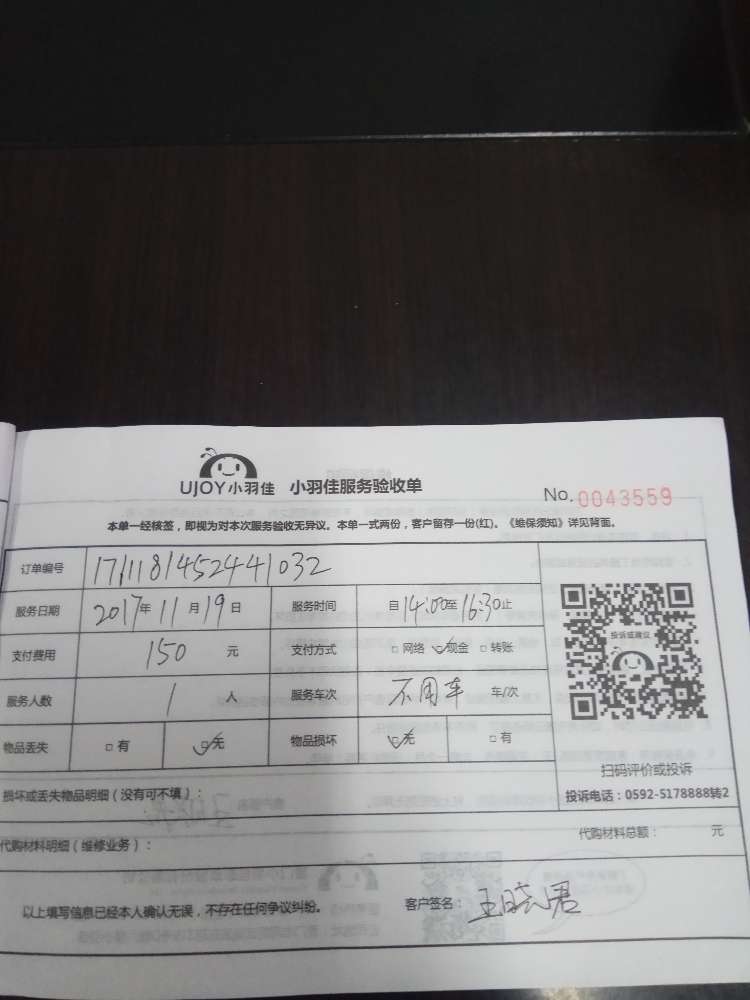 UJOY小羽佳 小羽佳服务验收单 No. 0043559
本单一经核签，即视为对本次服务验收无异议。本单一式两份，客户留存一份(红)。《维保须知》详见背面。
订单编号 1711181452441032
服务日期 2017年 11月 19日 服务时间 自14:00至16:30止
支付费用 150 元 支付方式 □网络 ☑现金 □转账
服务人数 1 人 服务车次 不用车 车/次
物品丢失 □有 ☑无 物品损坏 ☑无 □有
投诉或建议
扫码评价或投诉
投诉电话：0592-5178888转2
损坏或丢失物品明细（没有可不填）：
代购材料明细（维修业务）： 代购材料总额： 元
以上填写信息已经本人确认无误，不存在任何争议纠纷。 客户签名： 王晓君